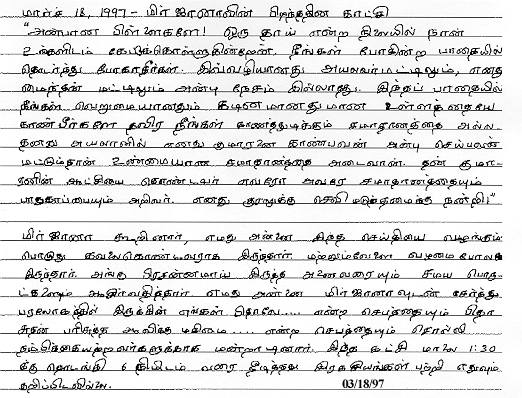 மார்ச் 18, 1997 - மிர்ஜானாவின் பிறந்ததின காட்சி
"அன்பான பிள்ளைகளே! ஒரு தாய் என்ற நிலையில் நான்
உங்களிடம் கேட்டுக்கொள்ளுகின்றேன். நீங்கள் போகின்ற பாதையில்
தொடர்ந்து போகாதீர்கள். இவ்வழியானது அயலவர்மட்டிலும், எனது
மைந்தன் மட்டிலும் அன்பு நேசம் இல்லாதது. இந்தப் பாதையில்
நீங்கள் வெறுமையானதும் கடினமானதுமான உள்ளத்தையே
காண்பீர்களே தவிர நீங்கள் காணத்துடிக்கும் சமாதானத்தை அல்ல.
தனது அயலானில் எனது குமாரனை காண்பவன் அன்பு செய்பவன்
மட்டும்தான் உண்மையான சமாதானத்தை அடைவான். தன் குமா-
ரனின் ஆட்சியை கொண்டவர் எவரோ அவரே சமாதானத்தையும்
பாதுகாப்பையும் அறிவர். எனது குரலுக்கு செவிமடுத்தமைக்கு நன்றி."
மிர்ஜானா கூறினார், எமது அன்னை இந்த செய்தியை வழங்கும்
பொழுது கவலைகொண்டவராக இருந்தார். மற்றும்வேளை வழமை போலவே
இருந்தார். அங்கு பிரசன்னமாய் இருந்த அனைவரையும் சமய பொரு-
ட்களையும் ஆசீர்வதித்தார். எமது அன்னை மிர்ஜானாவுடன் சேர்ந்து
பரலோகத்தில் இருக்கின்ற எங்கள் பிதாவே.... என்ற செபத்தையும் பிதா
சுதன் பரிசுத்த ஆவிக்கு மகிமை.... என்ற செபத்தையும் சொல்லி
நம்பிக்கையற்றவர்களுக்காக மன்றாடினார். இந்த காட்சி மாலை 1:30
க்கு தொடங்கி 6 நிமிடம் வரை நீடித்தது இரகசியங்கள் பற்றி எதுவும்
குறிப்பிடவில்லை. 03/18/97